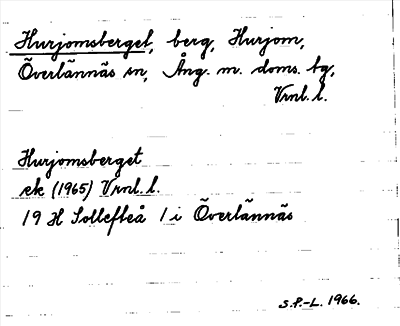 Hurjomsberget, berg, Hurjom,
Överlännäs sn, Ång. m. doms. tg,
Vrnl. l.
Hurjomsberget
ek (1965) Vrnl. l.
19 H Sollefteå 1 i Överlännäs
S.P.-L. 1966.